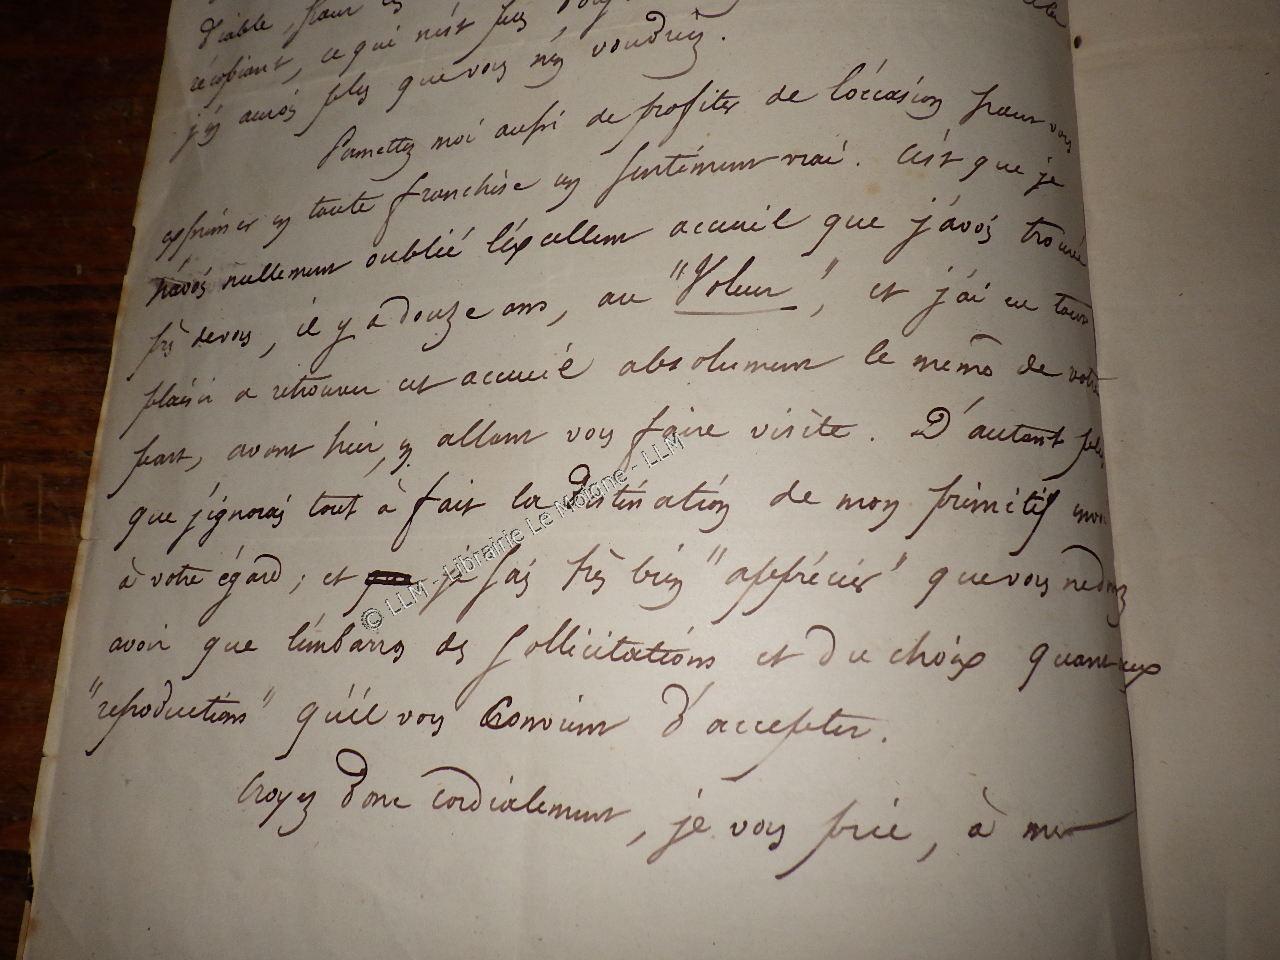 diable, pour
récopiant, ce qui n'est pas
j'en aurois plus que vous n'en voudriez.
Permettez moi aussi de profiter de l'occasion pour vous
exprimer en toute franchise un sentiment vrai. C'est que je
n'avois nullement oublié l'excellent accueil que j'avois trouvé
près de vous, il y a douze ans, au "Voleur", et j'ai eu tout
plaisir a retrouver cet accueil absolument le même de votre
part, avant hier, en allant vous faire visite. D'autant plus
que j'ignorais tout à fait la destination de mon primitif envoi
à votre égard; et je sais très bien "apprécier" que vous ne devez
avoir que l'embarras des sollicitations et du choix quant aux
"reproductions" qu'il vous convient d'accepter.
Croyez donc cordialement, je vous prie, à mes
© LLM - Librairie Le Moigne - LLM